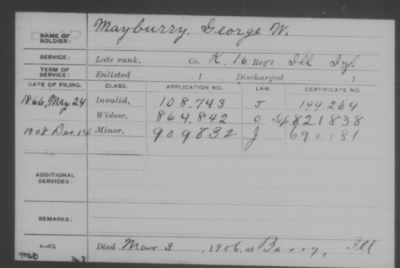 NAME OF SOLDIER: Mayburry, George W.
SERVICE: Late rank, Co. K, 16 Reg't Ill Inf.
TERM OF SERVICE: Enlisted , 1 Discharged , 1
DATE OF FILING. CLASS. APPLICATION NO. LAW. CERTIFICATE NO.
1866, May 24 Invalid, 108,743 J 144264
Widow, 864,842 821838
1908 Dec 14 Minor, 909832 J 692181
ADDITIONAL SERVICES:
REMARKS:
Died Mar 3, 1906, at Barry, Ill